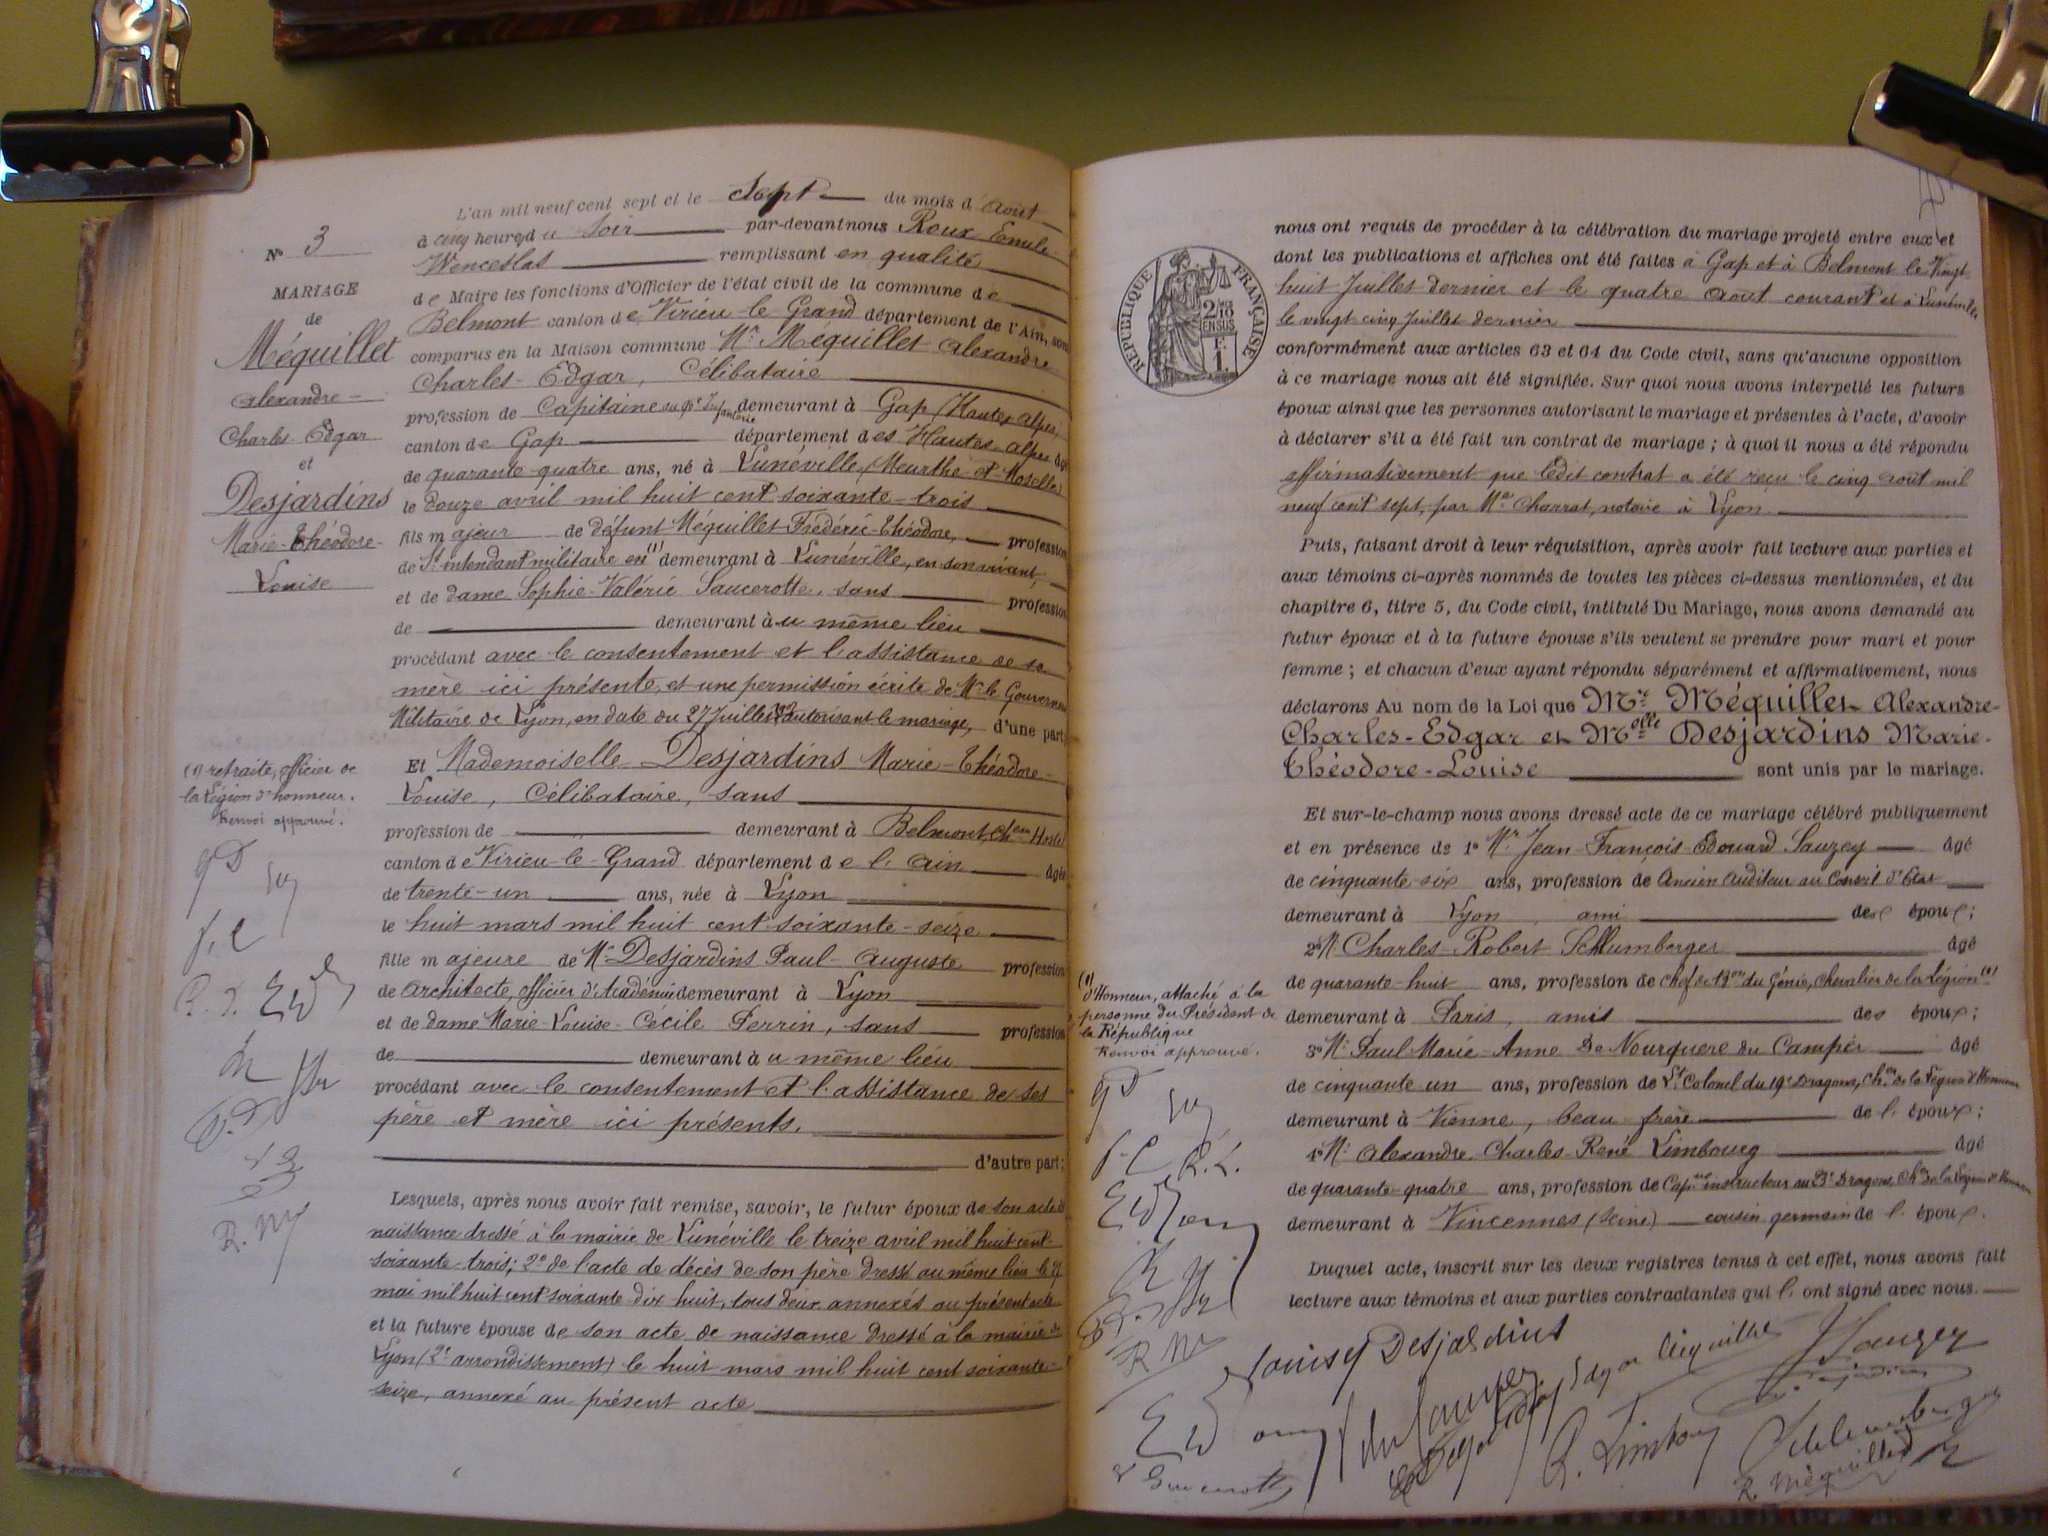 L'an mil neuf cent sept et le sept du mois d'août
à cinq heures du soir par-devant nous Roux Emile
Wenceslas remplissant en qualité
de Maire les fonctions d'Officier de l'état civil de la commune de
Belmont canton de Virieu-le-Grand département de l'Ain, sont
comparus en la Maison commune Mr Méquillet Alexandre
Charles-Edgar, Célibataire
profession de Capitaine au Infanterie demeurant à Gap (Hautes Alpes)
canton de Gap département des Hautes-Alpes âgé
de quarante-quatre ans, né à Lunéville (Meurthe-et-Moselle)
le douze avril mil huit cent soixante-trois
fils majeur de défunt Méquillet Frédéric-Théodore, profession
de St intendant militaire en (1) demeurant à Lunéville, en son vivant,
et de dame Sophie-Valérie Saucerotte, sans profession
de demeurant au même lieu
procédant avec le consentement et l'assistance de sa
mère ici présente, et une permission écrite de Mr le Gouverneur
Militaire de Lyon, en date du 27 Juillet autorisant le mariage, d'une part;
Et Mademoiselle Desjardins Marie-Théodore-
Louise, Célibataire, sans
profession de demeurant à Belmont,
canton de Virieu-le-Grand département de l'Ain âgée
de trente-un ans, née à Lyon
le huit mars mil huit cent soixante-seize
fille majeure de Mr Desjardins Paul-Auguste profession
de Architecte, officier d'Académie demeurant à Lyon
et de dame Marie-Louise-Cécile Perrin, sans profession
de demeurant au même lieu
procédant avec le consentement et l'assistance de ses
père et mère ici présents.
d'autre part;
Lesquels, après nous avoir fait remise, savoir, le futur époux de son acte de
naissance dressé à la mairie de Lunéville le treize avril mil huit cent
soixante-trois; 2° de l'acte de décès de son père dressé au même lieu le
mai mil huit cent soixante dix huit, tous deux annexés au présent acte
et la future épouse de son acte de naissance dressé à la mairie de
Lyon (2e arrondissement) le huit mars mil huit cent soixante-
seize, annexé au présent acte
N° 3
MARIAGE
de
Méquillet
Alexandre-
Charles-Edgar
et
Desjardins
Marie-Théodore-
Louise
(1) retraite, officier de
la Légion d'honneur.
Renvoi approuvé.
RÉPUBLIQUE FRANÇAISE
2/10
EN SUS
F.
1.
nous ont requis de procéder à la célébration du mariage projeté entre eux et
dont les publications et affiches ont été faites à Gap et à Belmont le Vingt
huit Juillet dernier et le quatre août courant et à Lunéville
le vingt cinq Juillet dernier
conformément aux articles 63 et 64 du Code civil, sans qu'aucune opposition
à ce mariage nous ait été signifiée. Sur quoi nous avons interpellé les futurs
époux ainsi que les personnes autorisant le mariage et présentes à l'acte, d'avoir
à déclarer s'il a été fait un contrat de mariage; à quoi il nous a été répondu
affirmativement que ledit contrat a été reçu le cinq août mil
neuf cent sept, par Me Charrat, notaire à Lyon.
Puis, faisant droit à leur réquisition, après avoir fait lecture aux parties et
aux témoins ci-après nommés de toutes les pièces ci-dessus mentionnées, et du
chapitre 6, titre 5, du Code civil, intitulé Du Mariage, nous avons demandé au
futur époux et à la future épouse s'ils veulent se prendre pour mari et pour
femme; et chacun d'eux ayant répondu séparément et affirmativement, nous
déclarons Au nom de la Loi que Mr Méquillet Alexandre-
Charles-Edgar et Melle Desjardins Marie-
Théodore-Louise sont unis par le mariage.
Et sur-le-champ nous avons dressé acte de ce mariage célébré publiquement
et en présence de 1° Mr Jean-François-Edouard Sauzey âgé
de cinquante-six ans, profession de Ancien Auditeur au Conseil d'Etat
demeurant à Lyon, ami des époux;
2° Mr Charles-Robert Schlumberger âgé
de quarante-huit ans, profession de chef de Bon du Génie, Chevalier de la Légion (1)
demeurant à Paris, amis des époux;
3° Mr Paul-Marie-Anne De Nourquere du Camper âgé
de cinquante un ans, profession de Lt Colonel du 19e Dragons, Cher de la Légion d'Honneur
demeurant à Vienne, beau frère de l'époux;
4° Mr Alexandre-Charles-René Limbourg âgé
de quarante-quatre ans, profession de Capne instructeur au 23e Dragons, Ch. de la Légion d'Honneur
demeurant à Vincennes (Seine) cousin germain de l'époux.
Duquel acte, inscrit sur les deux registres tenus à cet effet, nous avons fait
lecture aux témoins et aux parties contractantes qui l'ont signé avec nous.
(1)
d'Honneur, attaché à la
personne du Président de
la République
Renvoi approuvé.
Louise Desjardins
Edgar Méquillet
J Sauzey
R. Limbourg
Schlumberger
R. Méquillet